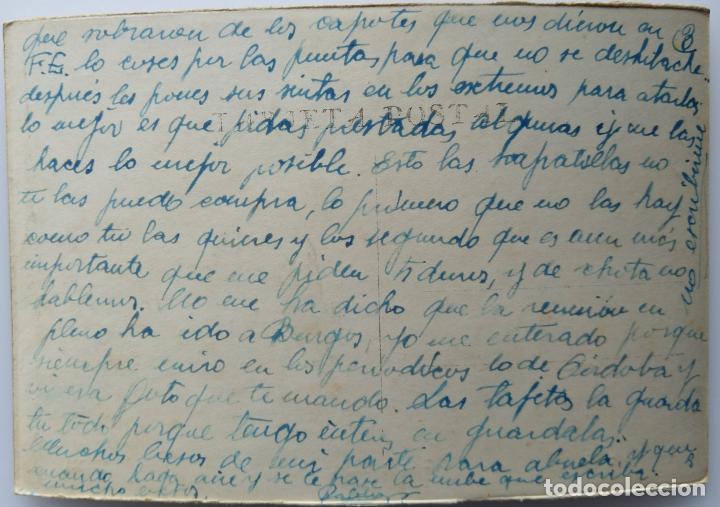 que sobraron de los capotes que nos dieron en 3
F.E. lo coses por las puntas para que no se deshilache
después les pones sus sintas en los extremos para atarlas
TARJETA POSTAL
lo mejor es que pidas prestadas algunas y me las
haces lo mejor posible. Esto las sapatillas no
te las puedo compra, lo primero que no las hay
como tu las quieres y los segundo que es aun más
importante que me piden 5 duros, y de chota no
hablemos. No me ha dicho que la reunión en
pleno ha ido a Burgos, yo me enterado porque
siempre miro en los periodicos lo de Córdoba y
vi esa foto que te mando. Las tajetas la guarda
tu todo porque tengo interes en guardalas.
Muchos besos de mi parte para abuela, y que
cuando haga aire y se le pase la nube que escriba.
mucho
no escribirme
todocoleccion.net